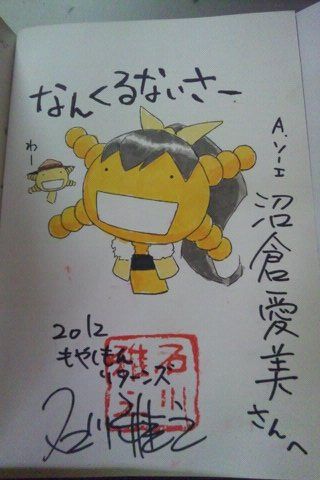 なんくるないさー
わー
A.ソーエ
沼倉愛美さんへ
2012
もやしもん
リターンズ
石川雅之